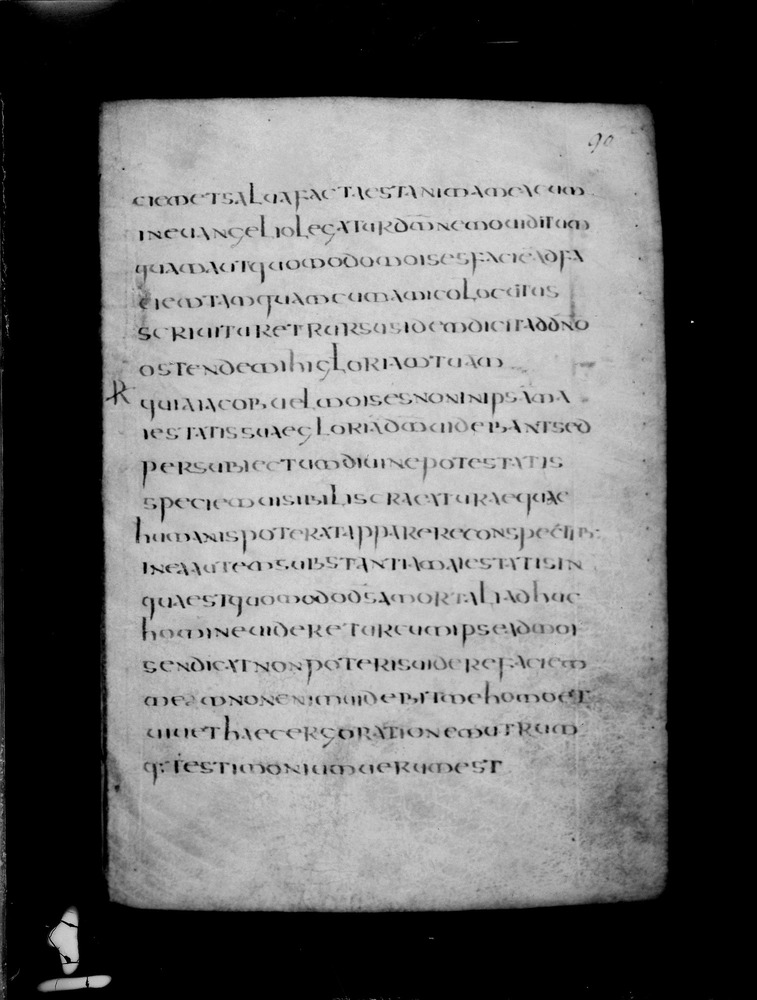 90
ciem et salua facta est anima mea cum
in euangelio legatur dm̄ nemo uiditum
quam aut quomodo moises facie ad fa
ciem tamquam cum amico locutus
scribitur et rursus idem dicit ad dn̄o
ostende mihi gloriam tuam
R quia iacob uel moises non in ipsa ma
iestatis suae gloria dm̄ uidebant sed
per subiectum diuine potestatis
speciem uisibilis creaturae quae
humanis poterat apparere conspectib:
in ea autem substantia maiestatis in
qua est quomodo ds̄ a mortali adhuc
homine uideretur cum ipse ad moi
sen dicat non poteris uidere faciem
meam non enim uidebit me homo et
uiuet hac ergo ratione utrum
q: testimonium uerum est